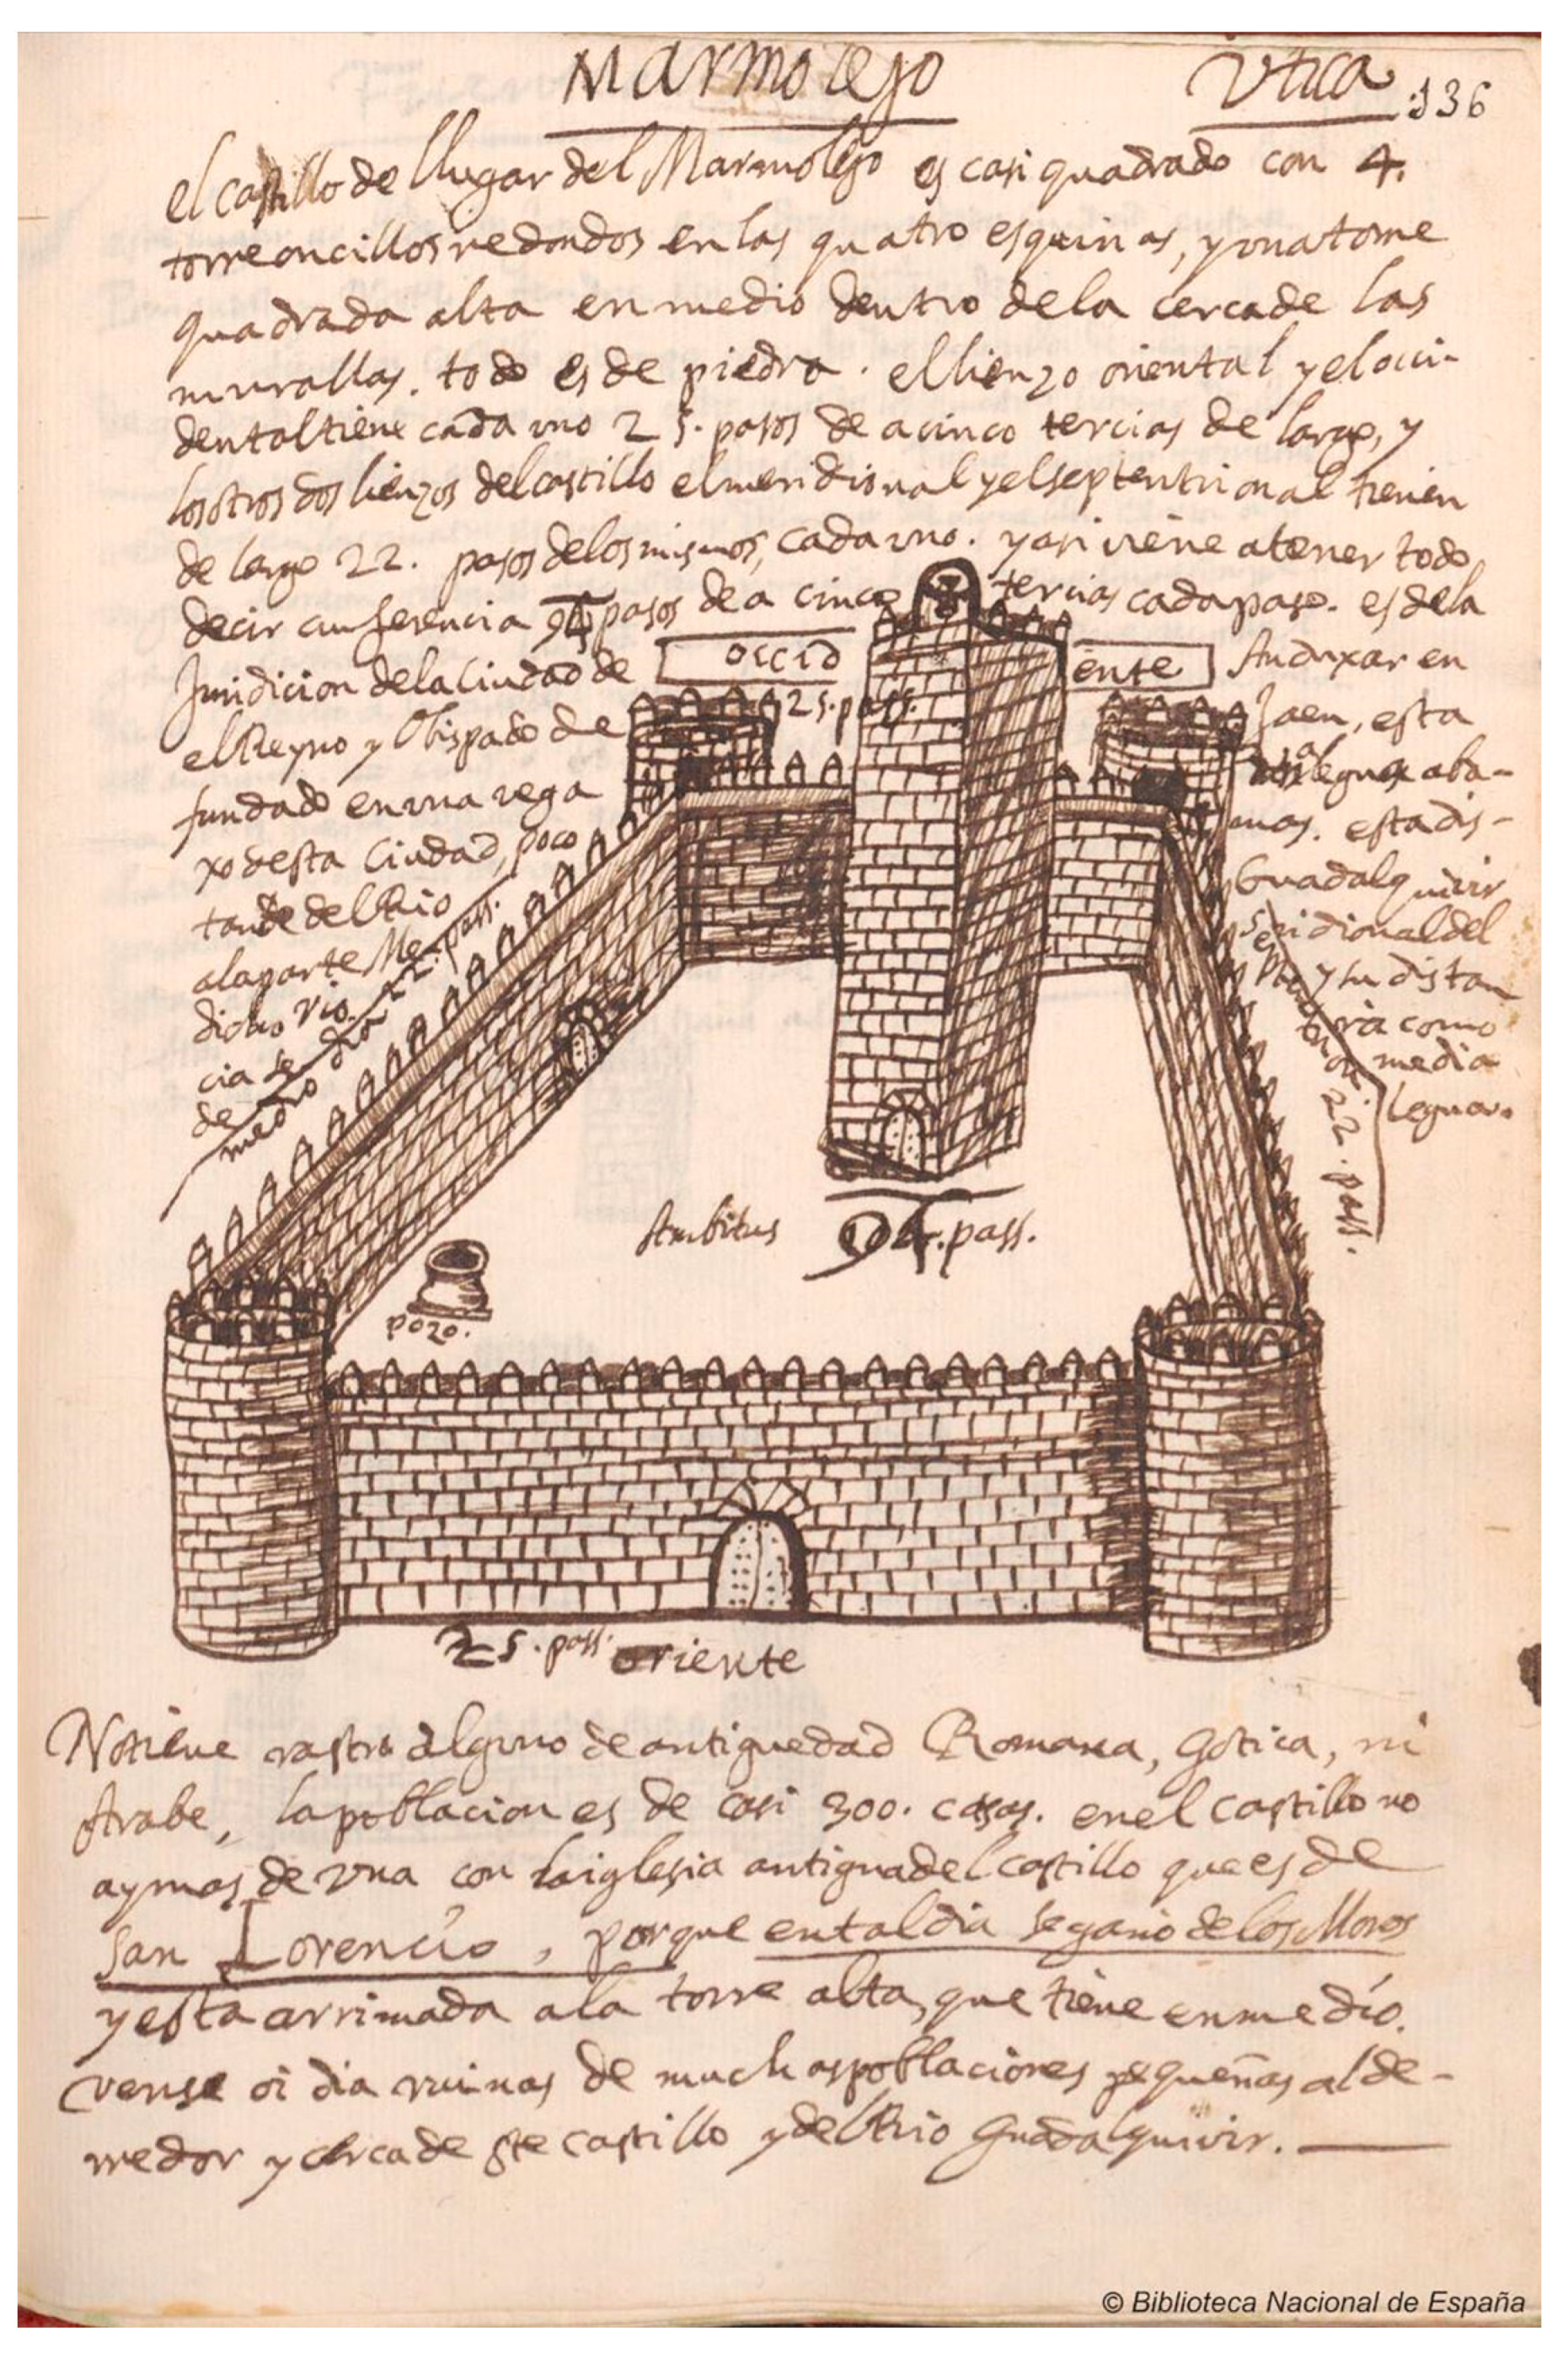 Marmolejo
Utica
136
el castillo de llugar del Marmolejo es casi quadrado con 4.
torreoncillos redondos en las quatro esquinas, y vna torre
quadrada alta en medio dentro de la cerca de las
murallas. todo es de piedra. el lienzo oriental y el occi-
dental tiene cada vno 25. pasos de a cinco tercias de largo, y
los otros dos lienzos del castillo el meridional y el septentrional tienen
de largo 22. pasos de los mismos, cada vno. y asi viene a tener todo
decir cunferencia 94 pasos de a cinco tercias cada paso. es de la
Juridicion de la Ciudad de Anduxar en
el Reyno y Obispado de Jaen, esta
fundado en vna vega legua aba-
xo desta Ciudad, poco mas. esta dis-
tante del Rio Guadalquivir
a la parte Meridional del
dicho rio. y su distan
cia sera como
de media
legua.
OCCIDENTE
25. pass.
medio dia 22. pass.
22. pass.
Ambitus 94. pass.
pozo.
25. pass. oriente
No tiene rastro alguno de antiguedad Romana, Gotica, ni
Arabe, la poblacion es de casi 300. casas. en el castillo no
ay mas de vna con la iglesia antigua del castillo que es de
San Lorencio, porque en tal dia se gano de los Moros
y esta arrimada a la torre alta, que tiene en medio.
vense oi dia ruinas de muchas poblaciones pequeñas al de-
rredor y cerca de ste castillo y del Rio Guadalquivir.
© Biblioteca Nacional de España